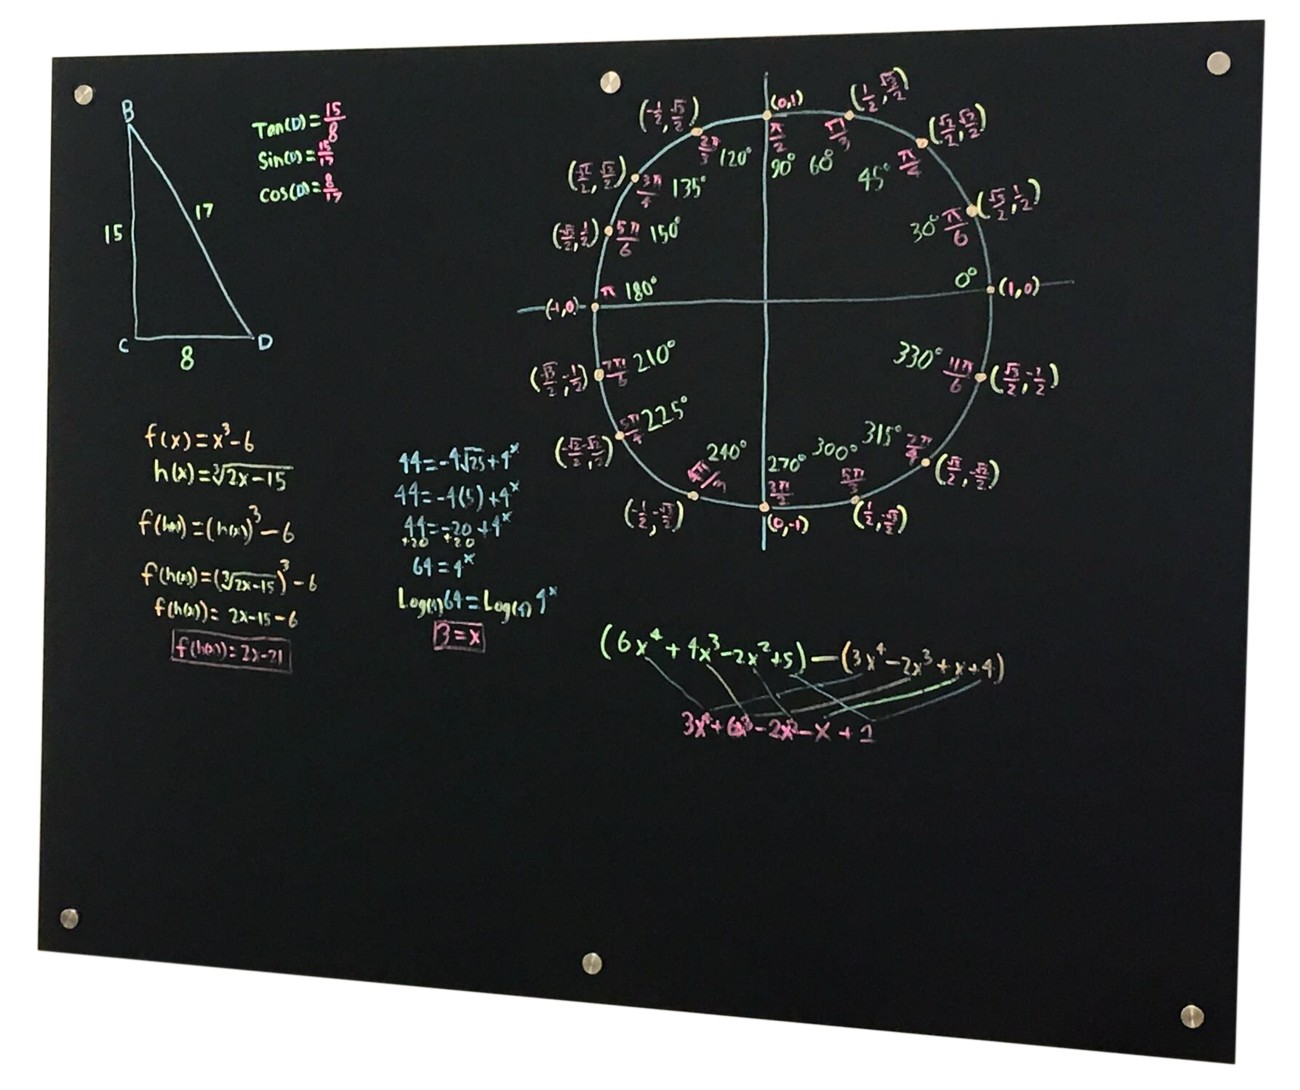 B
15
17
C
8
D
Tan(D)=15/8
Sin(D)=15/17
cos(D)=8/17
f(x)=x³-6
h(x)=∛2x-15
f(h(x))=(h(x))³-6
f(h(x))=(∛2x-15)³-6
f(h(x))=2x-15-6
f(h(x))=2x-21
44=-4√25+4ˣ
44=-4(5)+4ˣ
44=-20+4ˣ
+20 +20
64=4ˣ
Log(4)64=Log(4)4ˣ
3=x
(0,1)
π/2
90°
(1/2,√3/2)
π/3
60°
(√2/2,√2/2)
π/4
45°
(√3/2,1/2)
π/6
30°
0°
(1,0)
(-1/2,√3/2)
2π/3
120°
(-√2/2,√2/2)
3π/4
135°
(-√3/2,1/2)
5π/6
150°
(-1,0)
π
180°
(-√3/2,-1/2)
7π/6
210°
(-√2/2,-√2/2)
5π/4
225°
240°
(-1/2,-√3/2)
270°
3π/2
(0,-1)
300°
5π/3
(1/2,-√3/2)
315°
(√2/2,-√2/2)
330°
11π/6
(√3/2,-1/2)
(6x⁴+4x³-2x²+5)-(3x⁴-2x³+x+4)
3x⁴+6x³-2x²-x+1